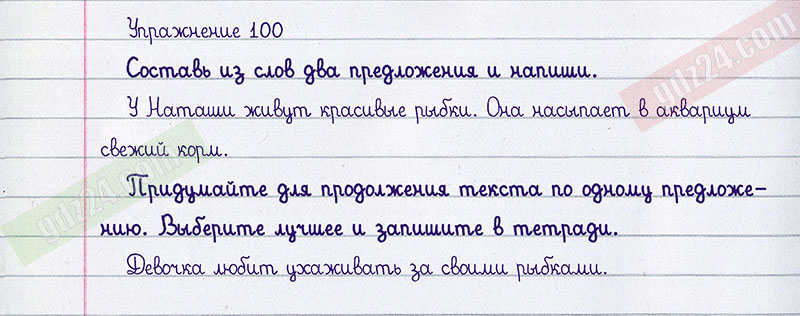 Упражнение 100
Составь из слов два предложения и напиши.
У Наташи живут красивые рыбки. Она насыпает в аквариум
свежий корм.
Придумайте для продолжения текста по одному предложе-
нию. Выберите лучшее и запишите в тетради.
Девочка любит ухаживать за своими рыбками.
gdz24.com
gdz24.com